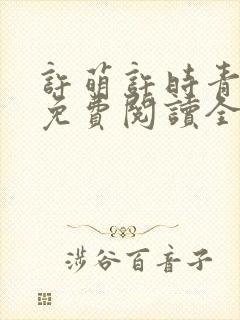 許萌許時青
免費閱讀全
涉谷百音子